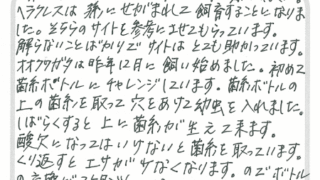 ヘラクレスは孫にせがまれて飼育することになりま
した。そちらのサイトを参考にさせてもらっています。
解らないことばかりでサイトはとても助かっています。
オオクワガタは昨年12月に飼い始めました。初めて
菌糸ボトルにチャレンジしています。菌糸ボトルの
上の菌糸を取って穴をあけて幼虫を入れました。
しばらくすると上に菌糸が生えて来ます。
酸欠になってはいけないと菌糸を取っています。
くり返すとエサがなくなります。のでボトル